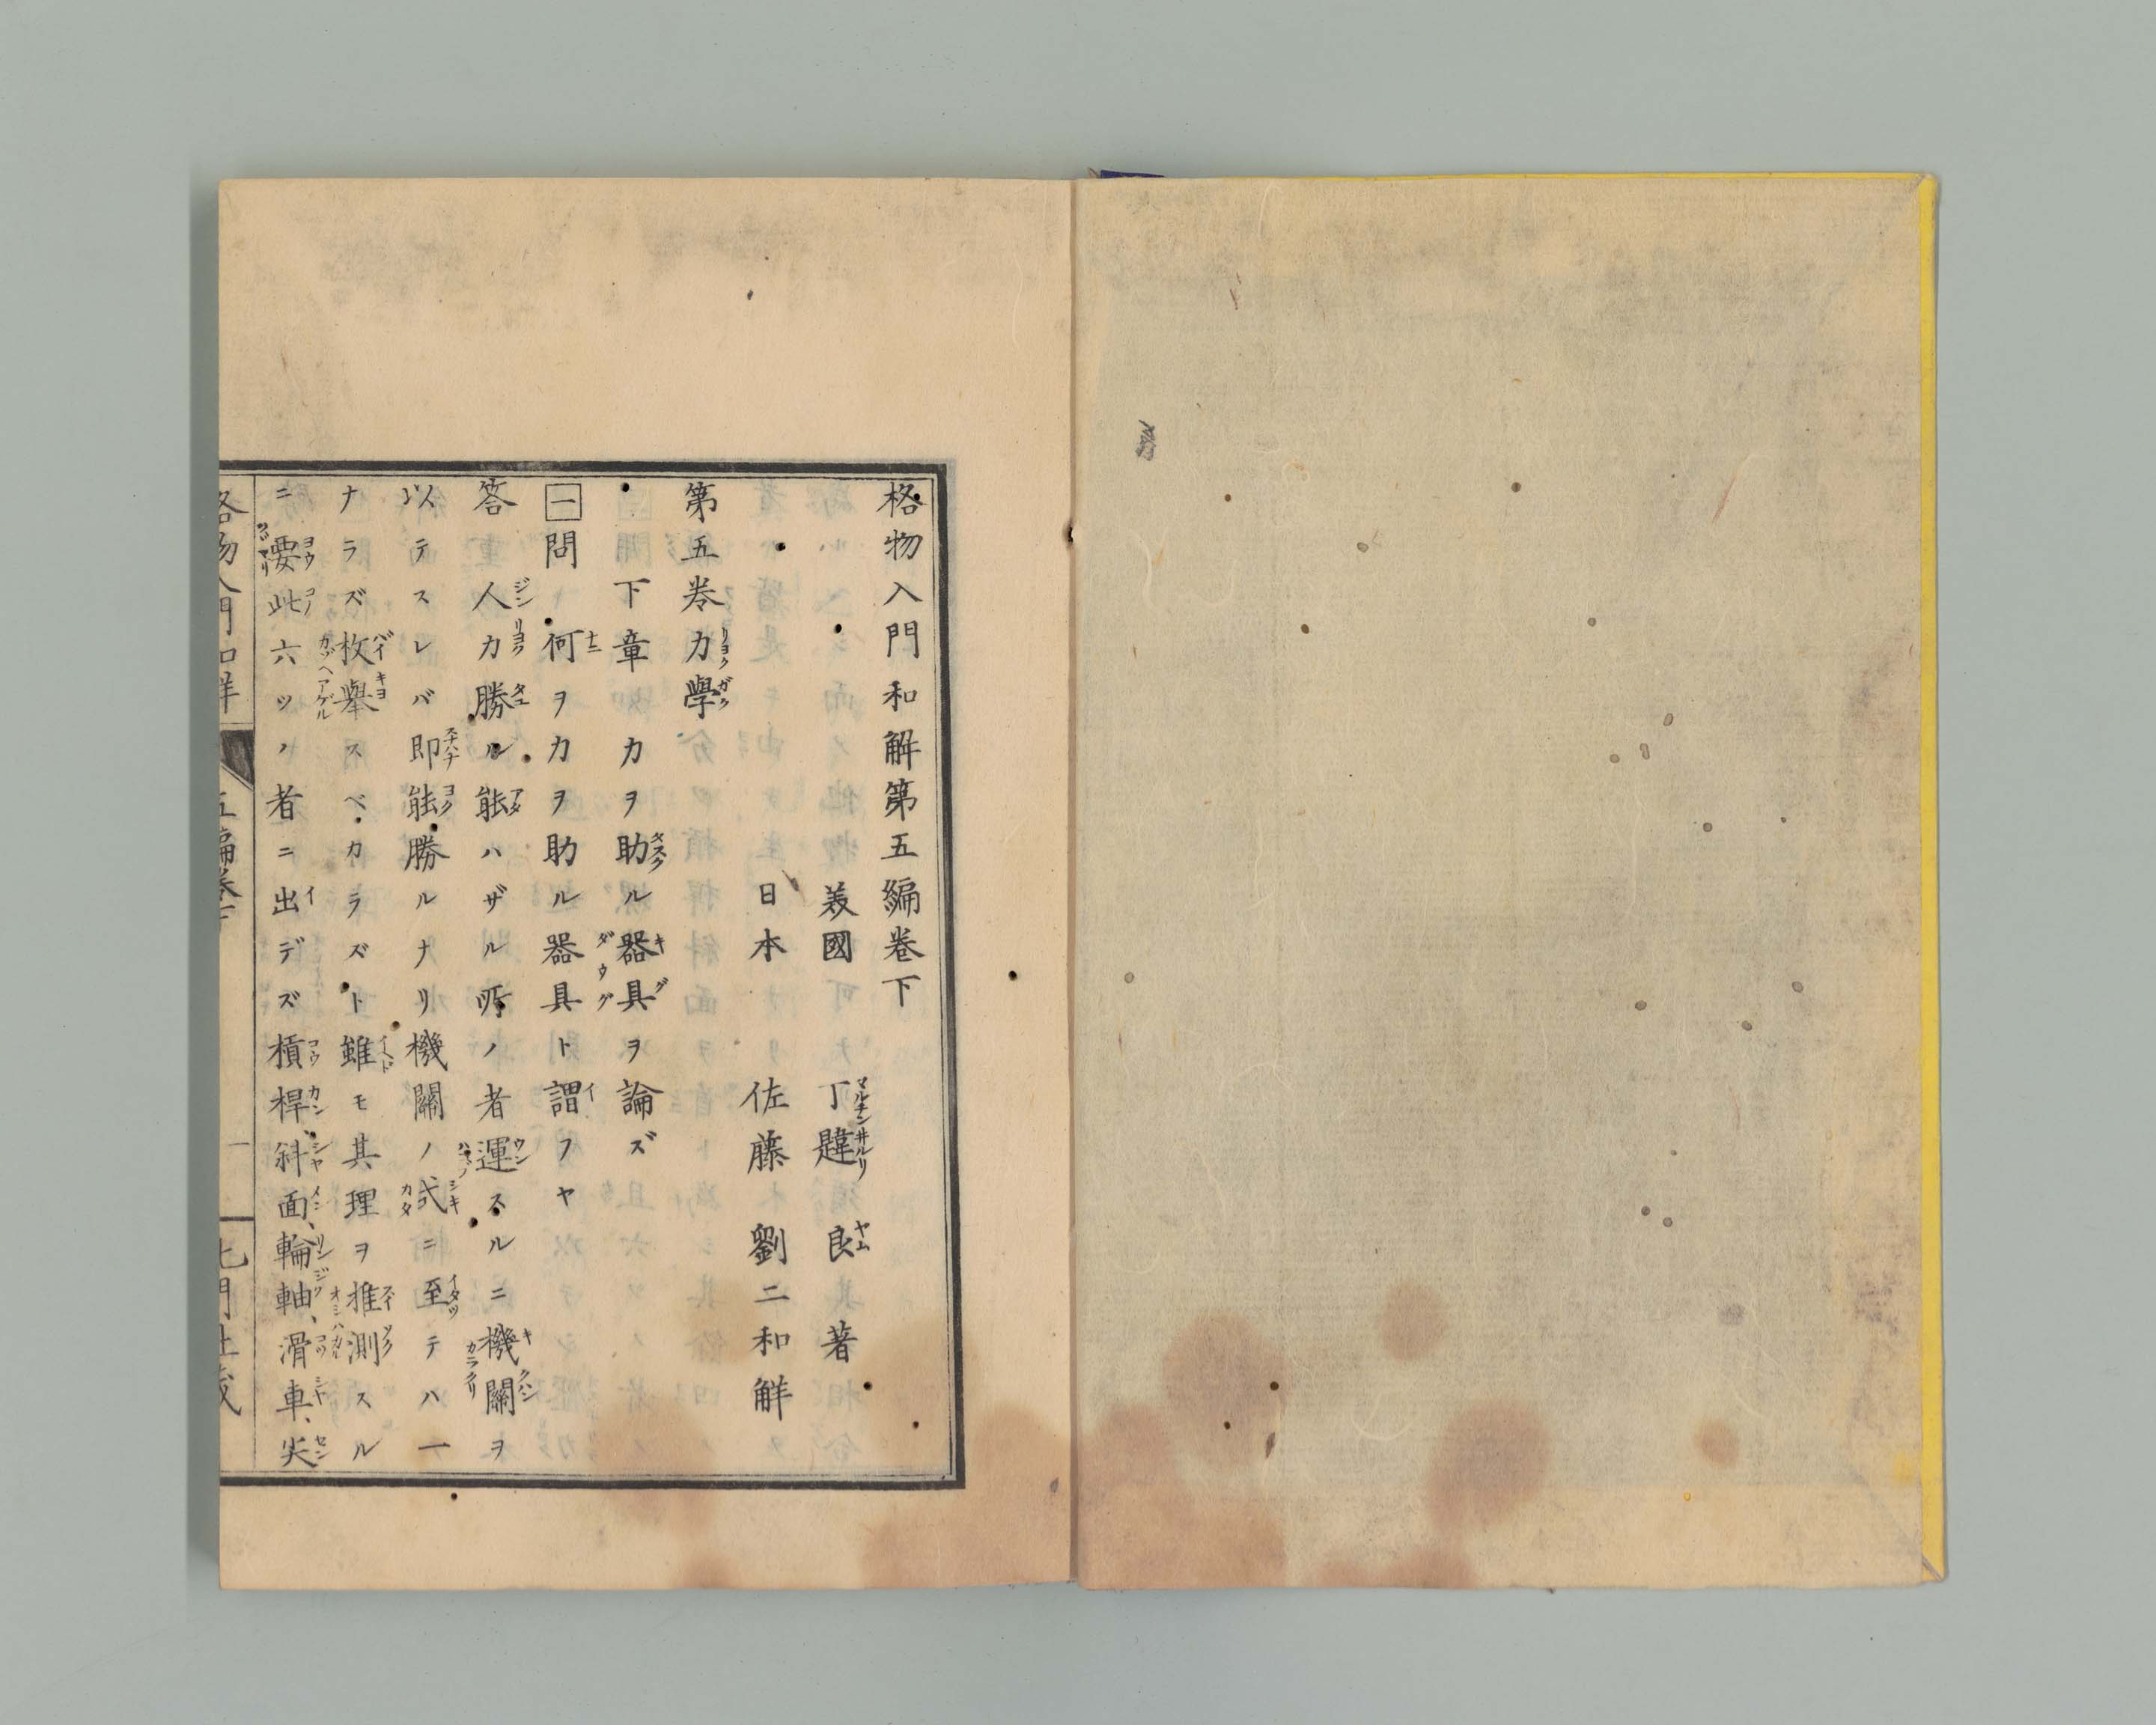 格物入門和解第五編卷下
美國 丁韙良 著
日本 佐藤 劉二 和解
第五卷力學
下章力ヲ助ル器具ヲ論ズ
一問 何ヲ力ヲ助ル器具ト謂フヤ
答 人力勝ル能ハザル所ノ者運スルニ機關ヲ
以テスレバ即能勝ルナリ機關ノ式ニ至テハ一
ナラズ枚擧スベカラズト雖モ其理ヲ推測スル
ニ要此六ツノ者ニ出デズ槓桿、斜面、輪軸、滑車、尖
格物入門和解 五編卷下 一 北門社藏